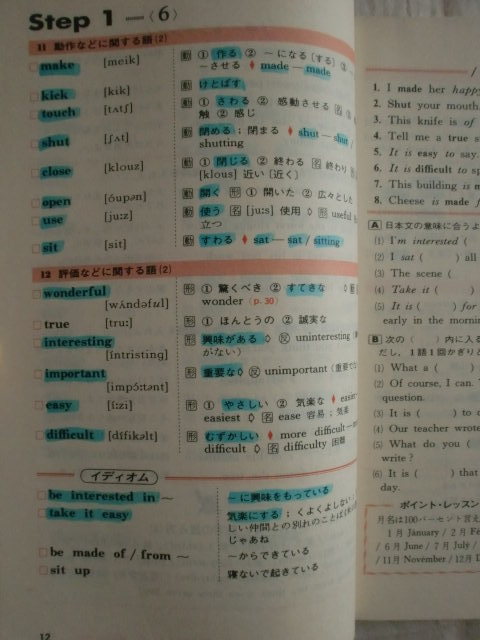 Step 1 —〈6〉
11 動作などに関する語(2)
make [meik] 動 ① 作る ② －になる〔する〕③ －
－させる ♦ made — made
kick [kik] 動 けとばす
touch [tʌtʃ] 動 ① さわる ② 感動させる 名 ①
触 ② 感じ
shut [ʃʌt] 動 閉める；閉まる ♦ shut — shut /
shutting
close [klouz] 動 ① 閉じる ② 終わる 名 終わり
[klous] 近い〔近く〕
open [óupən] 動 開く 形 ① 開いた ② 広々とした
use [ju:z] 動 使う 名 [ju:s] 使用 ◇ 形 useful
立つ
sit [sit] 動 すわる ♦ sat — sat / sitting
12 評価などに関する語(2)
wonderful [wʌ́ndəful] 形 ① 驚くべき ② すてきな ◇
wonder (p. 30)
true [tru:] 形 ① ほんとうの ② 誠実な
interesting [íntristiŋ] 形 興味がある ◇ 反 uninteresting
がない)
important [impɔ́:tənt] 形 重要な ◇ 反 unimportant (重要で
easy [í:zi] 形 ① やさしい ② 気楽な ♦ easier
easiest ◇ 名 ease 容易；気楽
difficult [dífikəlt] 形 むずかしい ♦ more difficult —
difficult ◇ 名 difficulty 困難
イディオム
be interested in ～ －に興味をもっている
take it easy 気楽にする；くよくよしない；
しい仲間との別れのことば
じゃあね
be made of / from ～ －からできている
sit up 寝ないで起きている
12
1. I made her happy
2. Shut your mouth.
3. This knife is of
4. Tell me a true s
5. It is easy to say.
6. It is difficult to sp
7. This building is m
8. Cheese is made f
A 日本文の意味に合うよ
(1) I'm interested (
(2) I sat ( ) all
(3) The scene (
(4) Take it (
(5) It is ( ) for
early in the mornin
B 次の( )内に入る
だし，1語1回かぎりと
(1) What a (
(2) Of course, I can.
question.
(3) It is ( ) to c
(4) Our teacher wrote
(5) What do you (
write ?
(6) It is ( ) that
day.
ポイント・レッスン
月名は100パーセント言え
1月 January / 2月 Fe
/ 6月 June / 7月 July /
/ 11月 November / 12月 D